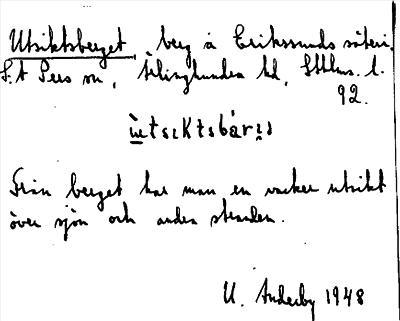 Utsiktsberget, berg å Erikssunds säteri,
S:t Pers sn, Ärlinghundra hd, Sthlms. l.
92.
ùtsiktsbárìə
Från berget har man en vacker utsikt
över sjön och andra stranden.
U. Anderby 1948